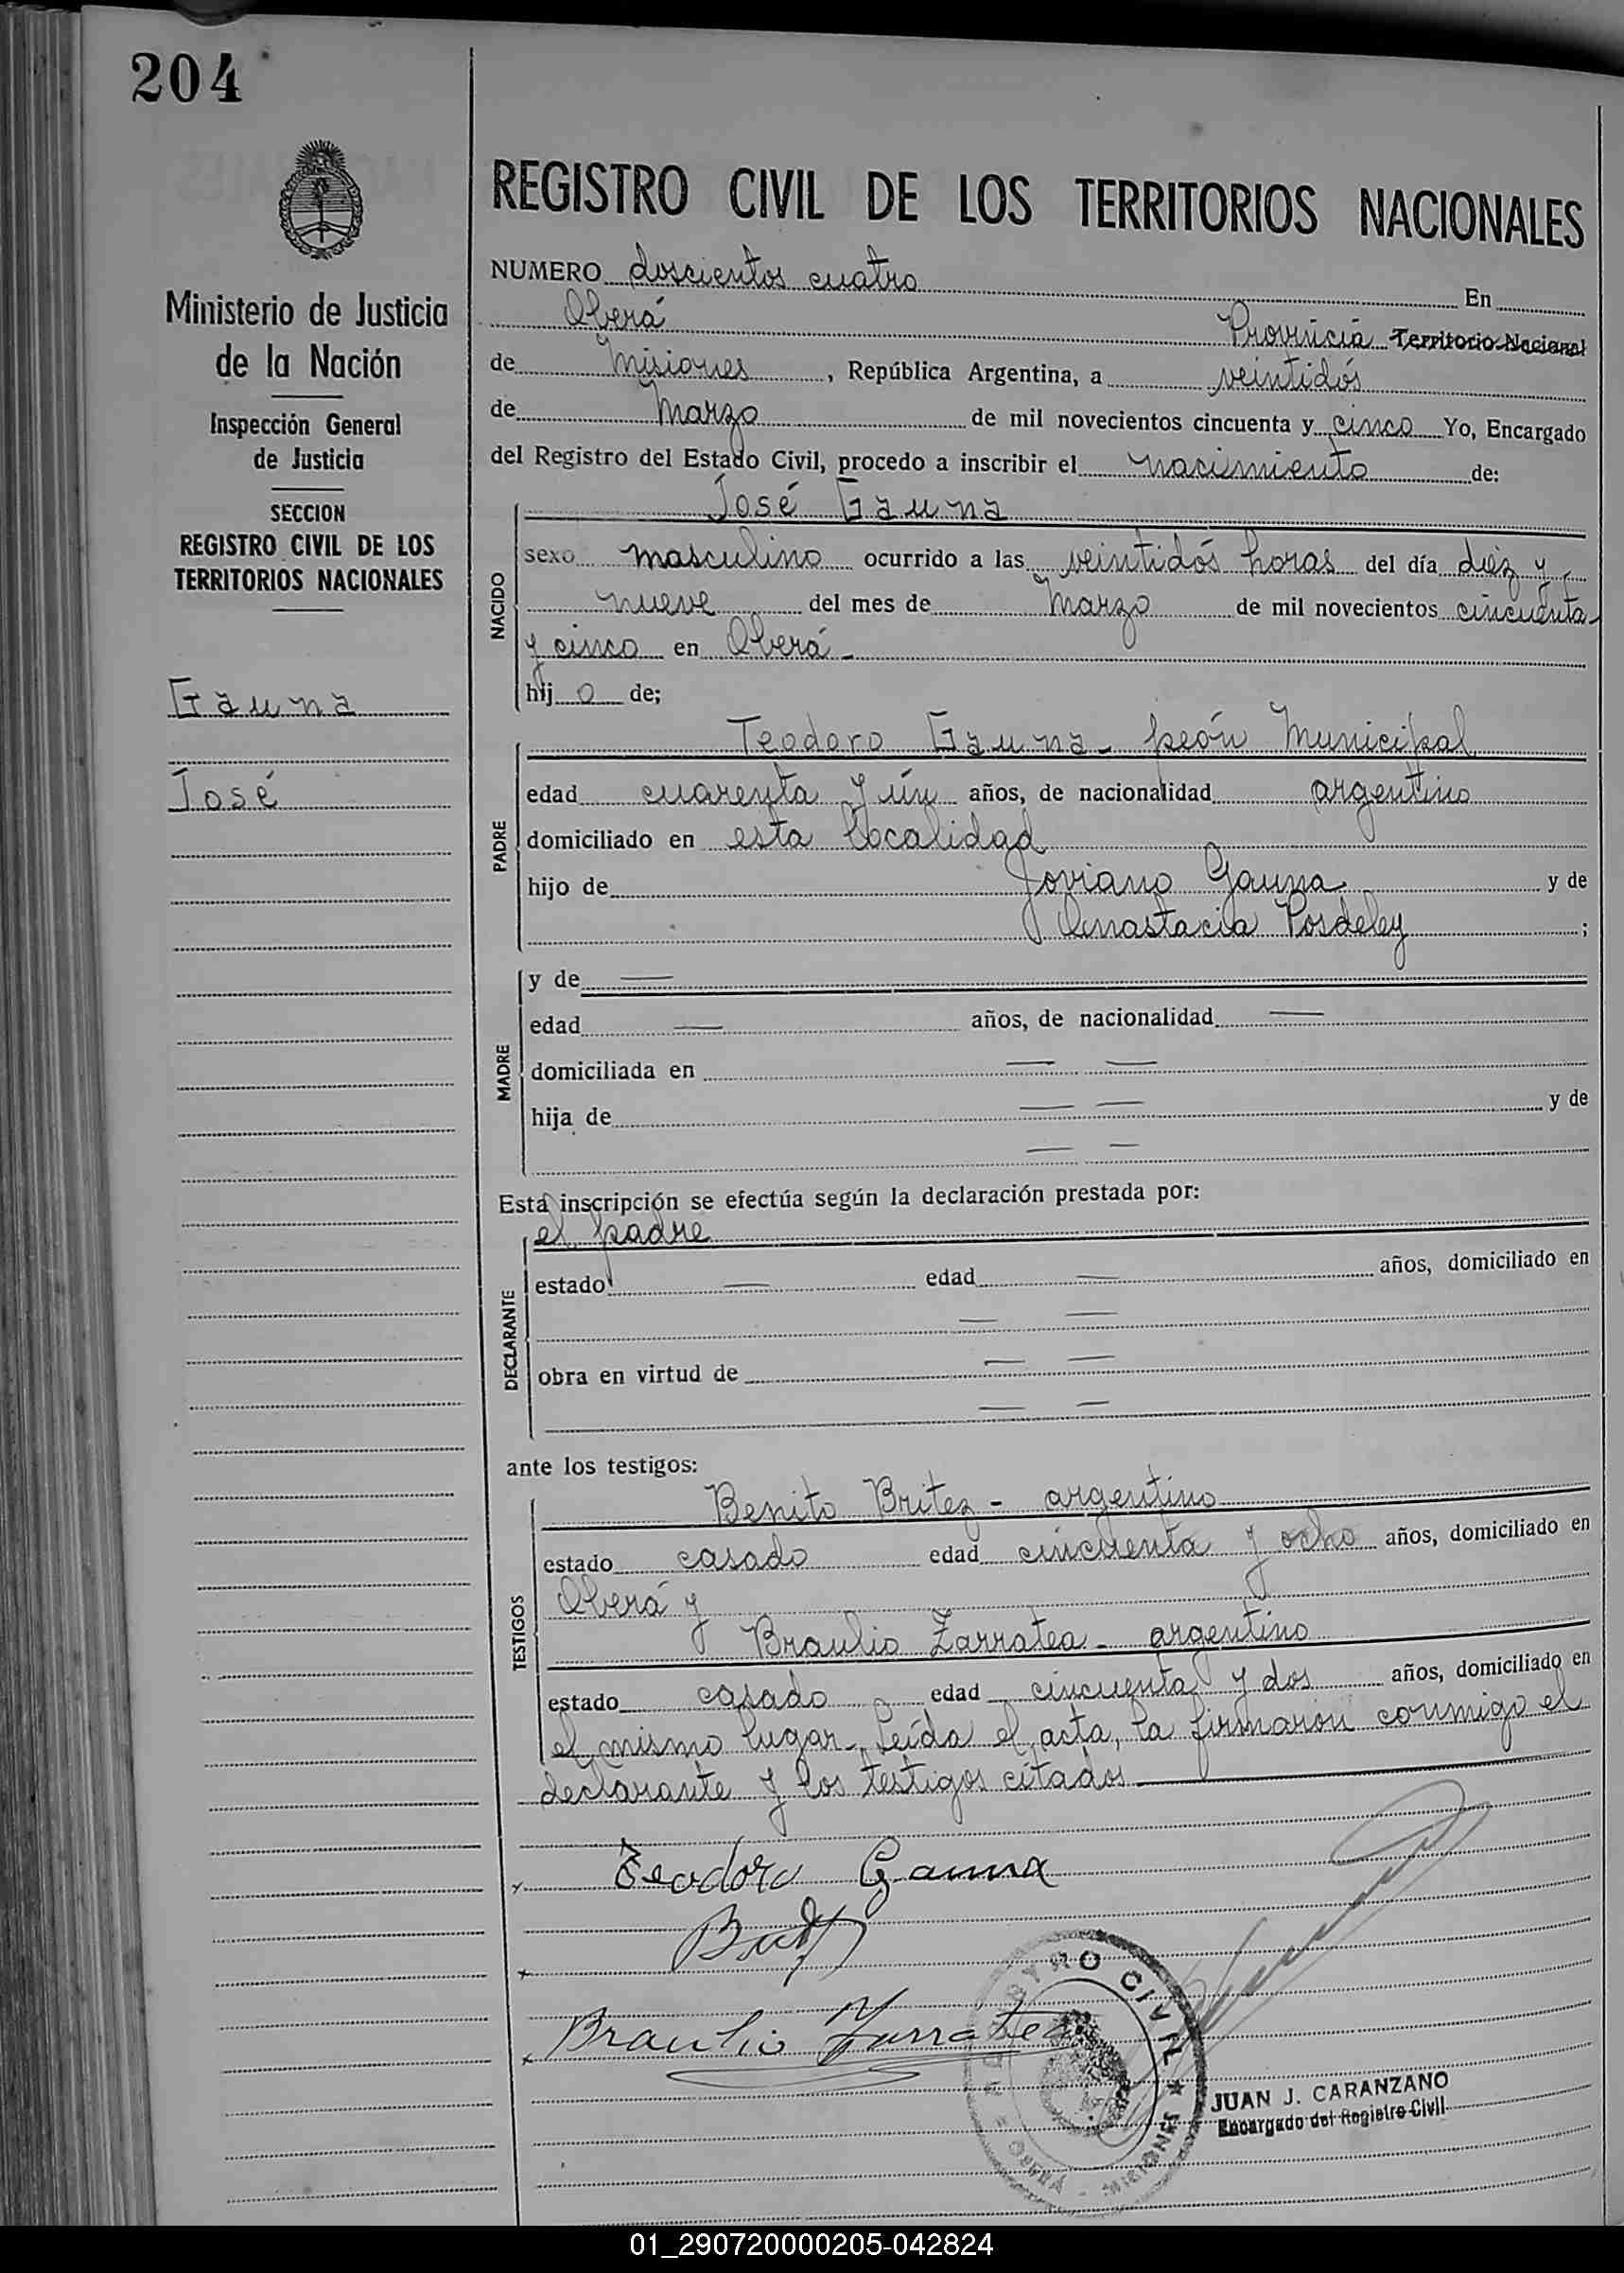 204
Ministerio de Justicia
de la Nación
Inspección General
de Justicia
SECCION
REGISTRO CIVIL DE LOS
TERRITORIOS NACIONALES
Gauna
José
REGISTRO CIVIL DE LOS TERRITORIOS NACIONALES
NUMERO doscientos cuatro En
Oberá Provincia Territorio Nacional
de Misiones, República Argentina, a veintidós
de Marzo de mil novecientos cincuenta y cinco Yo, Encargado
del Registro del Estado Civil, procedo a inscribir el nacimiento de:
José Gauna
NACIDO
sexo masculino ocurrido a las veintidós horas del día diez y
nueve del mes de Marzo de mil novecientos cincuenta
y cinco en Oberá -
hij o de;
Teodoro Gauna - peón Municipal
PADRE
edad cuarenta y ún años, de nacionalidad argentino
domiciliado en esta localidad
hijo de Joviano Gauna y de
Anastacia Posdeley ;
MADRE
y de —
edad — años, de nacionalidad —
domiciliada en — —
hija de — — y de
— —
Esta inscripción se efectúa según la declaración prestada por:
el padre
DECLARANTE
estado — edad — años, domiciliado en
— —
obra en virtud de — —
— —
ante los testigos:
Benito Britez - argentino
TESTIGOS
estado casado edad cincuenta y ocho años, domiciliado en
Oberá y
Braulio Zarratea - argentino
estado casado edad cincuenta y dos años, domiciliado en
el mismo lugar - Leída el acta, la firmaron conmigo el
declarante y los testigos citados
Teodoro Gauna
Braulio Zarratea
REGISTRO CIVIL
OBERÁ - MISIONES
JUAN J. CARANZANO
Encargado del Registro Civil
01_290720000205-042824